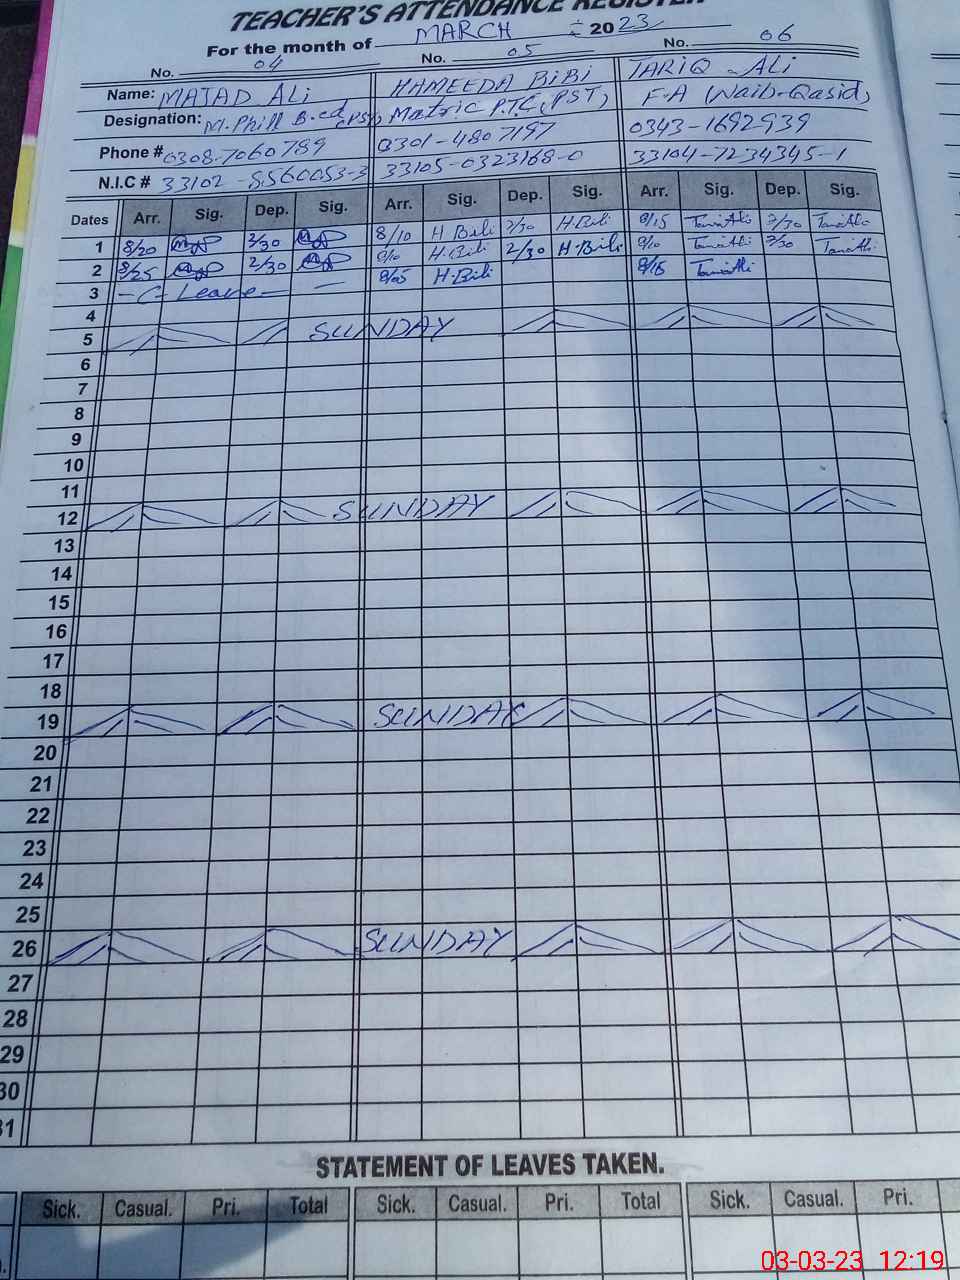 TEACHER'S ATTENDANCE REGISTER
For the month of MARCH 2023
No. 04 No. 05 No. 06
Name: MAJAD ALi HAMEEDA BiBi TARIQ ALi
Designation: M.Phill B.ed (PST) Matric P.T.C, (PST) F-A (Naib-Qasid)
Phone # 0308-7060789 0301-4807197 0343-1692939
N.I.C # 33102-8560053-3 33105-0323168-0 33104-7234345-1
Dates Arr. Sig. Dep. Sig. Arr. Sig. Dep. Sig. Arr. Sig. Dep. Sig.
1 8/20 2/30 8/10 H Bibi 2/30 H.Bibi 8/15 2/30
2 8/25 2/30 8/10 H.Bibi 2/30 H.Bibi 8/10 2/30
3 - C - Leave - - 8/05 H.Bibi 8/15
4
5 SUNDAY
6
7
8
9
10
11
12 SUNDAY
13
14
15
16
17
18
19 SUNDAY
20
21
22
23
24
25
26 SUNDAY
27
28
29
30
31
STATEMENT OF LEAVES TAKEN.
Sick. Casual. Pri. Total Sick. Casual. Pri. Total Sick. Casual. Pri.
03-03-23 12:19